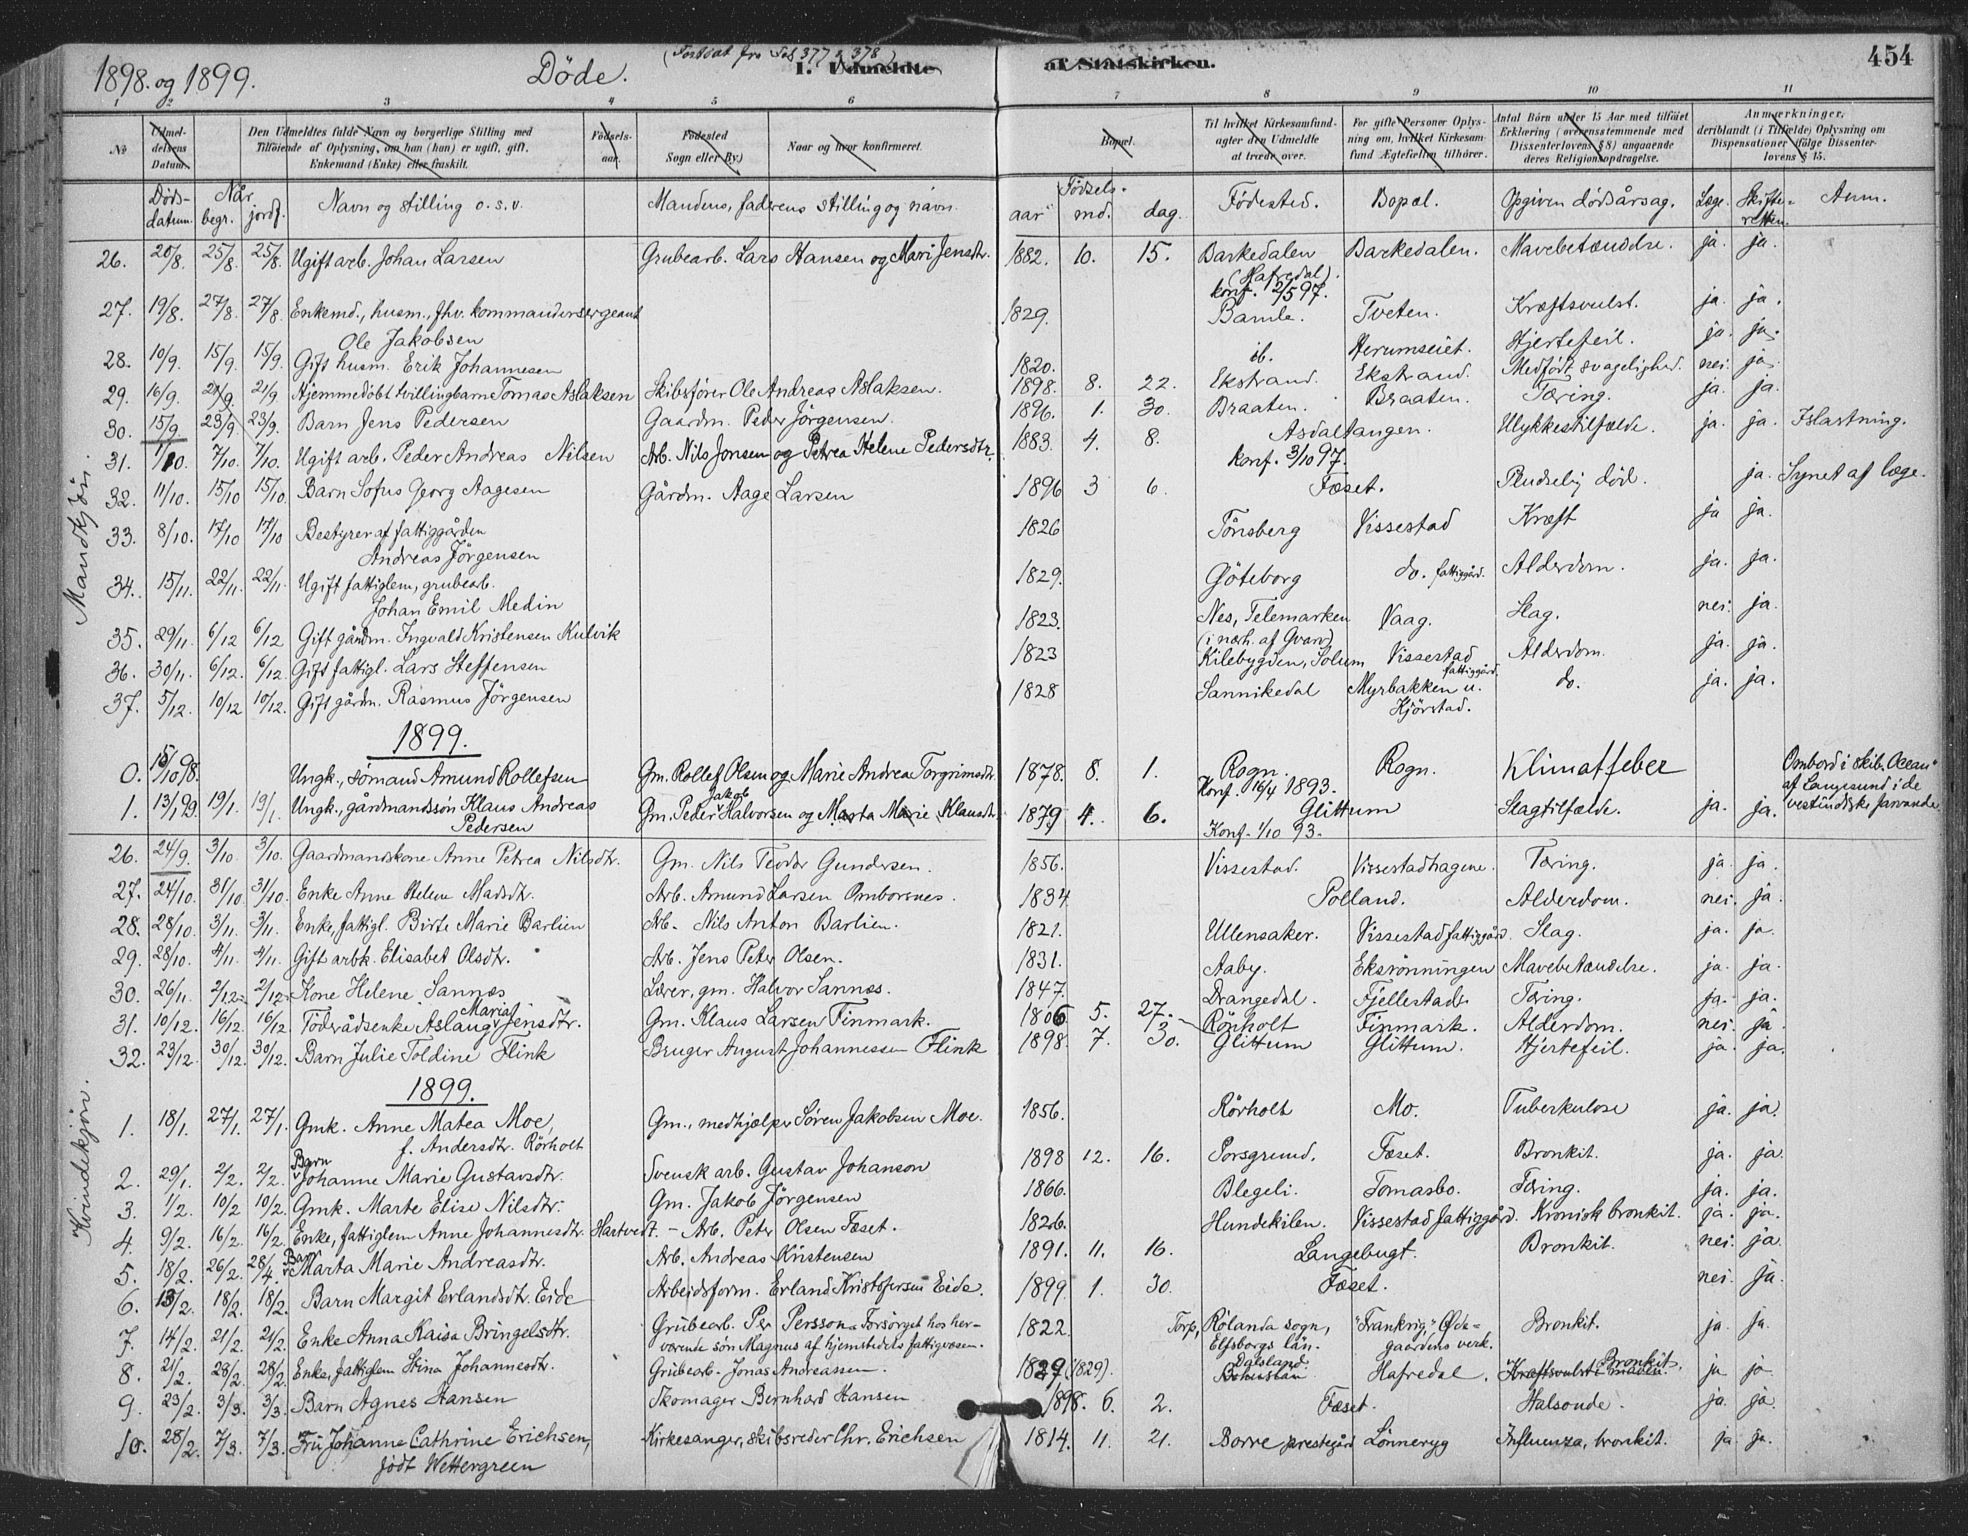 1898. og 1899. Døde. (Fortsat fra Side 377 & 378) 1. Udmeldte af Statskirken. 454
1 2 3 4 5 6 7 8 9 10 11
No Udmeldelsens Datum. Den Udmeldtes fulde Navn og borgerlige Stilling med Tilføiende af Oplysning, om han (hun) er ugift, gift, Enkemand (Enke) eller fraskilt. Fødselsaar. Fødested Sogn eller By.) Naar og hvor konfirmeret. Bopæl. Til hvilket Kirkesamfund agter den Udmeldte at træde over. For gifte Personer Oplysning om, hvilket Kirkesamfund Ægtefællen tilhører. Antal Børn under 15 Aar med tilføiet Erklæring (overensstemmende med Dissenterlovens § 8) angaaende deres Religionsopdragelse. Anmerkninger, deriblandt (i Tilfælde) Oplysning om Dispensationer ifølge Dissenterlovens § 15.
Dødsdatum. Når begr. jordf. Navn og stilling o.s.v. Mandens, faderens stilling og navn. Fødsels- aar md. dag. Fødested. Bopæl. Opgiven dødsårsag. Læge. Skifteretten. Anm.
Mandkjön.
26. 20/8. 25/8. 25/8. Ugift arb. Johan Larsen Grubearb. Lars Hansen og Mari Jensdtr. 1882. 10. 15. Barkedalen (Hafredal). konf. 2/5 97. Barkedalen. Mavebetændelse. ja. ja.
27. 19/8. 27/8. 27/8. Enkemd., husm., fhv. kommandersergeant Ole Jakobsen 1829. Bamle. Tveten. Kræftsvulst. ja. ja.
28. 10/9. 15/9. 15/9. Gift husm. Erik Johannesen 1820. ib. Herumseiet. Hjertefeil. ja. ja.
29. 16/9. 21/9. 21/9. Hjemmedöbt tvillingbarn Tomas Aslaksen Skibsförer Ole Andreas Aslaksen. 1898. 8. 22. Ekstrand. Ekstrand. Medfödt svagelighed. nei. ja.
30. 15/9. 23/9. 23/9. Barn Jens Pedersen Gaardm. Peder Jörgensen. 1896. 1. 30. Braaten. Braaten. Tæring. ja. ja.
31. 1/10. 7/10. 7/10. Ugift arb. Peder Andreas Nilsen Arb. Nils Jonsen og Petrea Helene Pedersdtr. 1883. 4. 8. Asdaltangen. konf. 3/10 97. Ulykkestilfælde. ja. ja. Islastning.
32. 11/10. 15/10 15/10. Barn Sofus Georg Aagesen Gårdm. Aage Larsen 1896 3 6. Fæset. Pludselig död. ja. Synet af læge.
33. 8/10. 17/10 17/10 Bestyrer af fattiggården Andreas Jörgensen 1826 Tönsberg Vissestad Kræft ja ja.
34. 15/11. 22/11. 22/11. Ugift fattiglem, grubearb. Johan Emil Medin 1829. Göteborg do. fattiggård. Alderdom. ja. ja.
35. 29/11. 6/12 6/12 Gift gårdm. Ingvald Kristensen Kulvik 1823. Nes, Telemarken (i nærh. af Gvarv) Vaag. Slag. nei. ja.
36. 30/11. 6/12. 6/12. Gift fattigl. Lars Steffensen 1823 Kilebygden, Solum Vissestad fattiggård. Alderdom. ja. ja.
37. 5/12. 10/12 10/12. Gift gårdm. Rasmus Jörgensen 1828 Sannikedal Myrbakken u. Kjörstad. do. ja. ja.
1899.
0. 15/10 98. Ungk., sömand Amund Rollefsen Gm. Rollef Olsen og Marie Andrea Torgrimsdtr. 1878. 8. 1. Rogn. Konf. 16/4 1893. Rogn. Klimatfeber Ombord i skib "Ocean" af Langesund i de vestindiske farvande.
1. 13/1 99. 19/1. 19/1. Ungk., gårdmandssön Klaus Andreas Pedersen Gm. Peder Jakob Halvorsen og Marta Marie Klausdtr. 1879 4. 6. Glittum Konf. 1/10 93. Slagtilfælde. ja. ja.
Kvindekjön.
26. 24/9. 3/10. 3/10. Gaardmandskone Anne Petrea Nilsdtr. Gm. Nils Teodor Gundersen. 1856. Vissestad. Vissestadhagene. Tæring. ja. ja.
27. 24/10. 31/10. 31/10. Enke Anne Helene Madsdtr. Arb. Amund Larsen Omborsnes. 1834 Polland. Alderdom. nei. ja.
28. 28/10. 3/11. 3/11. Enke, fattigl. Birte Marie Barlien Arb. Nils Anton Barlien. 1821. Ullensaker. Vissestad fattiggård. Slag. ja. ja.
29. 28/10. 4/11. 4/11. Gift arbk. Elisabet Olsdtr. Arb. Jens Peter Olsen. 1831. Aaby. Eksrönningen Mavebetændelse. ja. ja.
30. 26/11. 2/12. 2/12. Kone Helene Sannæs Lærer, gm. Halvor Sannæs. 1847. Drangedal. Fjellestad. Tæring. ja. ja.
31. 10/12. 16/12. 16/12. Föderådsenke Aslaug Maria Jensdtr. Gm. Klaus Larsen Finmark. 1806 5. 27. Rörholt Finmark. Alderdom. nei. ja
32. 23/12. 30/12. 30/12. Barn Julie Toldine Flink Bruger August Johannessen Flink 1898. 7. 30. Glittum Glittum. Hjertefeil. ja. ja.
1899.
1. 18/1. 27/1. 27/1. Gmk. Anne Matea Moe, f. Andersdtr. Rörholt Gm., medhjælper Sören Jakobsen Moe. 1856. Rörholt Mo. Tuberkulose ja. ja.
2. 29/1. 2/2. 2/2. Barn Johanne Marie Gustavsdtr. Svensk arb. Gustav Johanson 1898 12. 16. Porsgrund. Fæset. Bronkit. ja. ja.
3. 1/2. 10/2 10/2. Gmk. Marte Elise Nilsdtr. Gm. Jakob Jörgensen 1866. Blegeli. Tomasbo. Tæring. ja. ja.
4. 9/2. 16/2. 16/2. Enke, fattiglem Anne Johannesdtr. Hastvedt - Arb. Peter Olsen Fæset. 1826. Hundekilen. Vissestad fattiggård. Kronisk bronkit. ja. ja.
5. 18/2. 26/2. 28/4. Barn Marta Marie Andreasdtr. Arb. Andreas Kristensen 1891. 11. 16. Langebugt. Bronkit. nei. ja.
6. 13/2. 18/2. 18/2. Barn Margit Erlandsdtr. Eide Arbeidsform. Erland Kristofersen Eide. 1899 1. 30. Fæset. nei. ja.
7. 14/2. 21/2. 21/2. Enke Anna Kaisa Bringelsdtr. Grubearb. Per Persson. Forsörget hos herværende sön Magnus af hjemstedets fattigvæsen. 1822. Torp, Rölanda sogn, Elfsborgs län. Dalsland. "Frankrig," Ødegaardens verk. Bronkit. ja. ja.
8. 21/2. 28/2. 28/2. Enke, fattiglem Stina Johannesdtr. Grubearb. Jonas Andreassen. 1829 (1829). Bohuslän Hafredal. Kræftsvulst i maven. Bronkit. ja ja
9. 23/2. 3/3. 3/3. Barn Agnes Hansen Skomager Bernhard Hansen 1898. 6. 2. Fæset. Halsonde. ja. ja.
10. 28/2. 7/3. 7/3. Fru Johanne Cathrine Erichsen, födt Wettergreen Kirkesanger, skibsreder Chr. Erichsen 1814. 11. 21. Borre prestegård Lönneryg Influenza, bronkit. ja. ja.